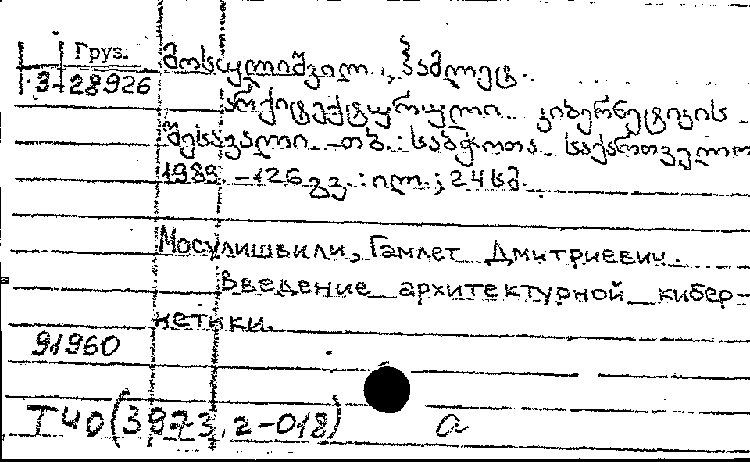 Груз.
3-28926
მოსულიშვილი, ჰამლეტ.
არქიტექტურული კიბერნეტიკის
შესავალი. - თბ. : საბჭოთა საქართველო
1989. - 126 გვ. : ილ. ; 24 სმ.
Мосулишвили, Гамлет Дмитриевич.
Введение архитектурной кибер-
нетики.
91960
Т40(3973,2-018) а